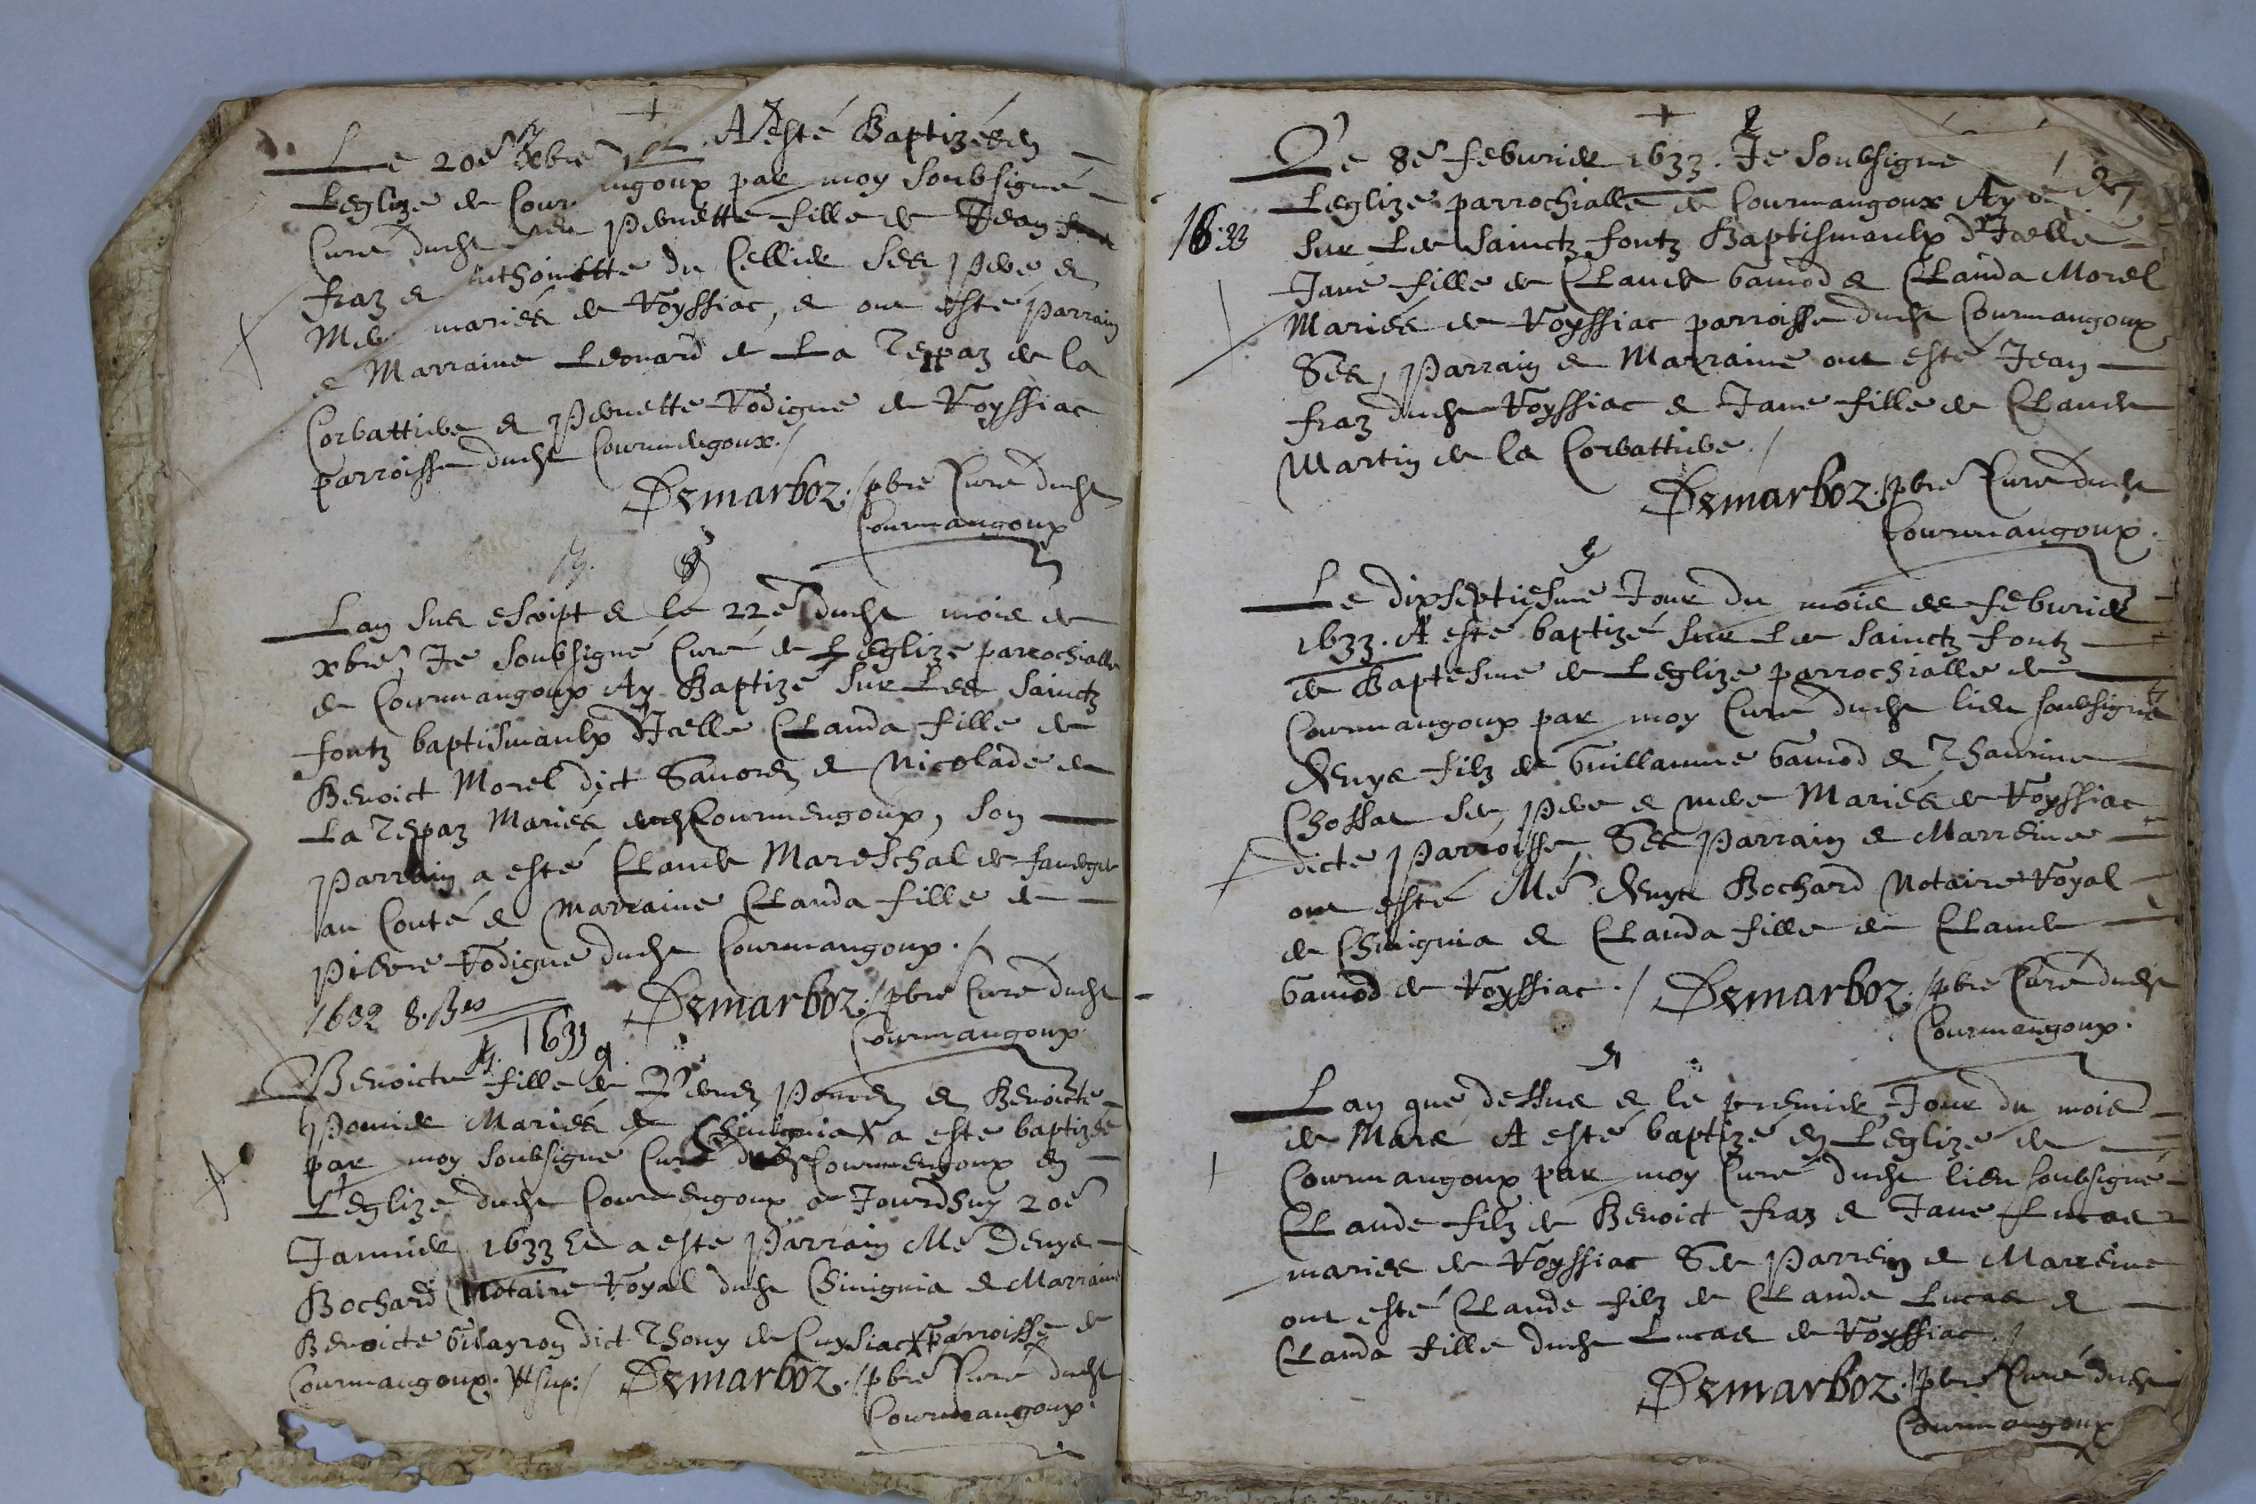 Le 20e xbre A esté Baptizée en
Leglize de Cour ngoux par moy soubsigné
Curé dudt lieu Pernette fille de Jean
fraz & Anthoinette du Cellier ses pere &
Mere mariés de Royssiac, & ont esté parrain
& Marraine Leonard de La Teppaz de la
Corbattiere & Pernette Rodigue de Royssiac
parroisse dudt Courmangoux./
Demarboz./ pbre Curé dudt
Courmangoux
Lan sus escript & le 22e dudt mois de
xbre, Je soubsigné Curé de Leglize parrochialle
de Courmangoux Ay Baptizé sur Les sainctz
fontz baptismaulx d'Icelle Clauda fille de
Benoict Morel dict Savorez & Nicolade de
La Teppaz Mariés dudt Courmengoux, son
Parrain a esté Claude Mareschal de
au Conté & Marraine Clauda fille de
Pierre Rodigue dudt Courmangoux./
1632 8.
Demarboz./ pbre Curé dudt
Courmangoux
1633
Benoicte fille de & Benoicte
Mariés de Chinignia a esté baptizée
par moy soubsigné Curé dudt Courmengoux en
L'eglize dudt Courmengoux ce Jourdhuy 20e
Janvier 1633 Et a esté Parrain Me Denys
Bochard Notaire Royal dudt Chinignia & Marraine
Benoicte Guilayron dict Thony de Cuysiac parroisse de
Courmangoux. sup:/ Demarboz./ pbre Curé dudt
Courmangoux.
Le 8e feburier 1633. Je soubsigné
Leglize parrochialle de Courmangoux Ay
16.33
sur Les sainctz fontz Baptismaulx d'Icelle
Jane fille de Claude Gamod & Clauda Morel
Mariés de Royssiac parroisse dudt Courmangoux
Ses Parrain & Marraine ont esté Jean
fraz dudt Royssiac & Jane fille de Claude
Martin de la Corbattiere./
Demarboz./ pbre Curé dudt
Courmangoux.
Le dixseptiesme Jour du mois de feburier
1633. A esté baptizé sur Les sainctz fontz
de Baptesme de Leglize parrochialle de
Courmangoux par moy Curé dudt lieu soubsigné
Denys filz de Guillaume Gamod & Thaurine
Chossat ses Pere & mere Mariés de Royssiac
dicte Parroisse Ses Parrain & Marreine
ont esté Me Denys Bochard Notaire Royal
de Chinignia & Clauda fille de Claude
Gamod de Royssiac./ Demarboz./ pbre Curé dudt
Courmangoux.
Lan que dessus & le premier Jour du mois
de Mars A esté baptizé en L'eglize de
Courmangoux par moy Curé dudt lieu soubsigné
Claude filz de Benoict fraz & Jane Lucas
mariés de Royssiac Ses Parrein & Marreine
ont esté Claude filz de Claude Lucas &
Clauda fille dudt Lucas de Royssiac./
Demarboz./ pbre Curé dudt
Courmangoux